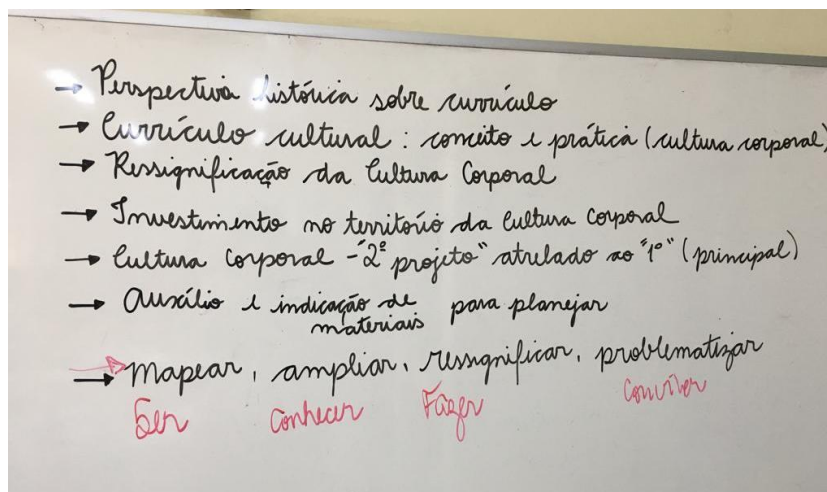 → Perspectiva histórica sobre currículo
→ Currículo cultural : conceito e prática (cultura corporal)
→ Ressignificação da Cultura Corporal
→ Investimento no território da Cultura Corporal
→ Cultura Corporal - "2º projeto" atrelado ao "1º" (principal)
→ Auxílio e indicação de materiais para planejar
→ Mapear, ampliar, ressignificar, problematizar
Ser Conhecer Fazer Conviver